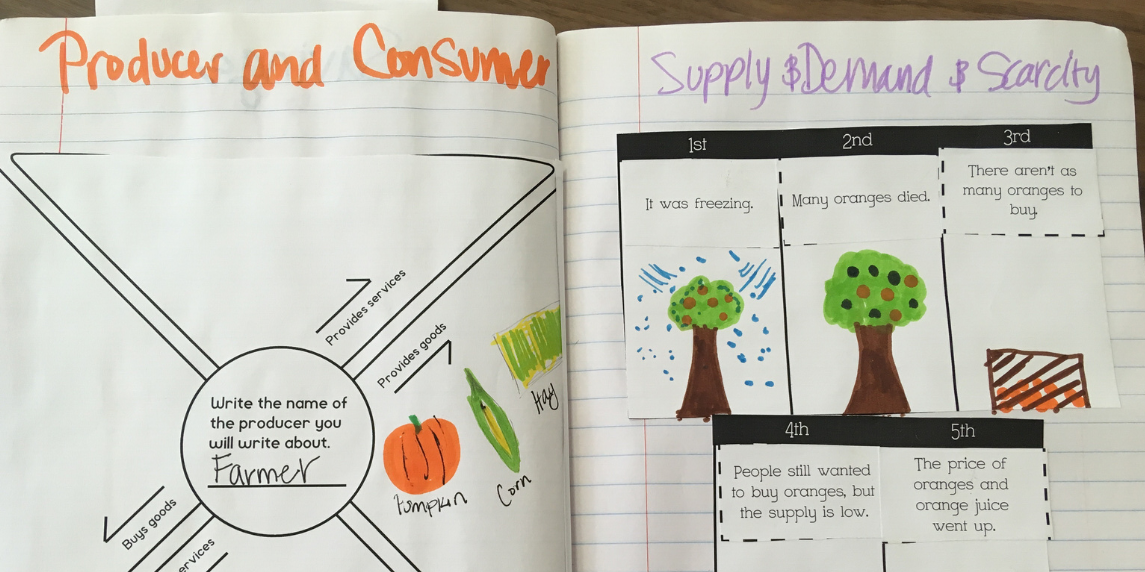 Producer and Consumer
Provides services
Provides goods
Write the name of
the producer you
will write about.
Farmer
Pumpkin
Corn
Hay
Buys goods
Supply & Demand & Scarcity
1st
2nd
3rd
It was freezing.
Many oranges died.
There aren't as
many oranges to
buy.
4th
5th
People still wanted
to buy oranges, but
the supply is low.
The price of
oranges and
orange juice
went up.